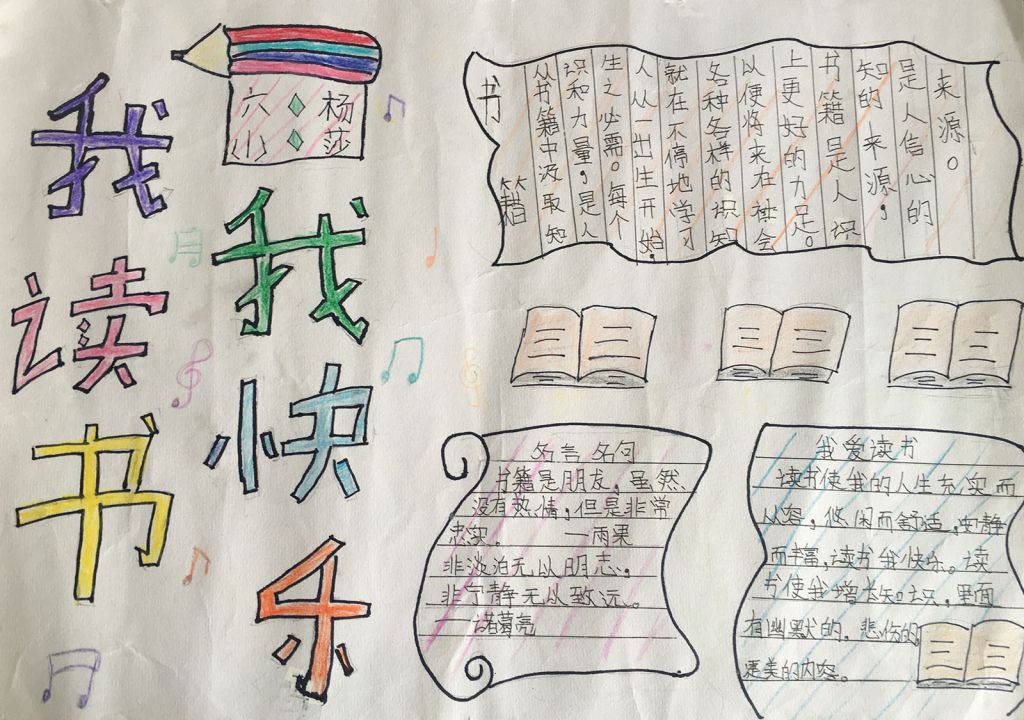 我读书
我快乐
六小
杨莎
书籍
从书籍中汲取知
识和力量，是人
生之必需。每个
人从一出生开始，
就在不停地学习
各种各样的识知
以便将来在社会
上更好的足。
书籍是人识
知的来源，
是人信心的
来源。
名言名句
书籍是朋友，虽然
没有热情，但是非常
忠实。 —雨果
非淡泊无以明志，
非宁静无以致远。
—诸葛亮
我爱读书
读书使我的人生充实而
从容，悠闲而舒适，安静
而丰富，读书我快乐。读
书使我增长知识，里面
有幽默的，悲伤的
美的内容。